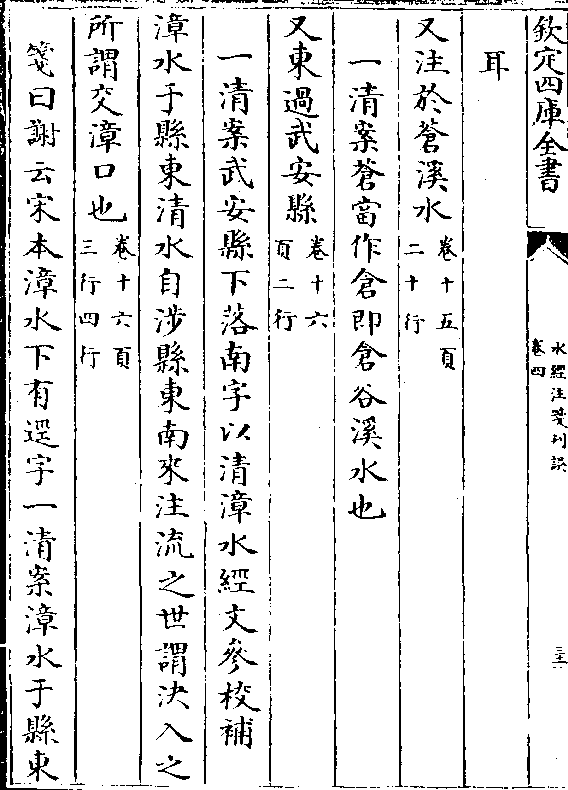 欽定四庫全書
水經注箋刊誤
卷四
耳
又注於蒼溪水
卷十五頁
二十行
一清案蒼當作倉即倉谷溪水也
又東過武安縣
卷十六
頁二行
一清案武安縣下落南字以清漳水經文參校補
漳水于縣東清水自涉縣東南來注流之世謂決入之
所謂交漳口也
卷十六頁
三行四行
箋曰謝云宋本漳水下有逕字一清案漳水于縣東